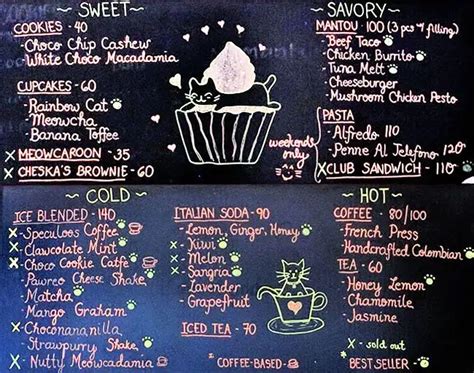 ~ SWEET ~
COOKIES - 40
- Choco Chip Cashew
- White Choco Macadamia
CUPCAKES - 60
- Rainbow Cat
- Meowcha
- Banana Toffee
x MEOWCAROON - 35
x CHESKA'S BROWNIE - 60
weekends only
~ SAVORY ~
MANTOU - 100 (3 pcs w/ filling)
- Beef Taco
- Chicken Burrito
- Tuna Melt
- Cheeseburger
- Mushroom Chicken Pesto
PASTA
- Alfredo 110
- Penne Al Telefono 120
x CLUB SANDWICH - 110
~ COLD ~
ICE BLENDED - 140
x - Speculoos Coffee
- Clawcolate Mint
x - Choco Cookie Catfe
- Pawreo Cheese Shake
- Matcha
- Mango Graham
x - Choconananilla
- Strawpurry Shake
x - Nutty Meowcadamia
ITALIAN SODA - 90
- Lemon, Ginger, Honey
x - Kiwi
x - Melon
x - Sangria
- Lavender
- Grapefruit
ICED TEA - 70
COFFEE-BASED -
~ HOT ~
COFFEE - 80/100
- French Press
- Handcrafted Colombian
TEA - 60
- Honey Lemon
- Chamomile
- Jasmine
x - sold out
BEST SELLER -